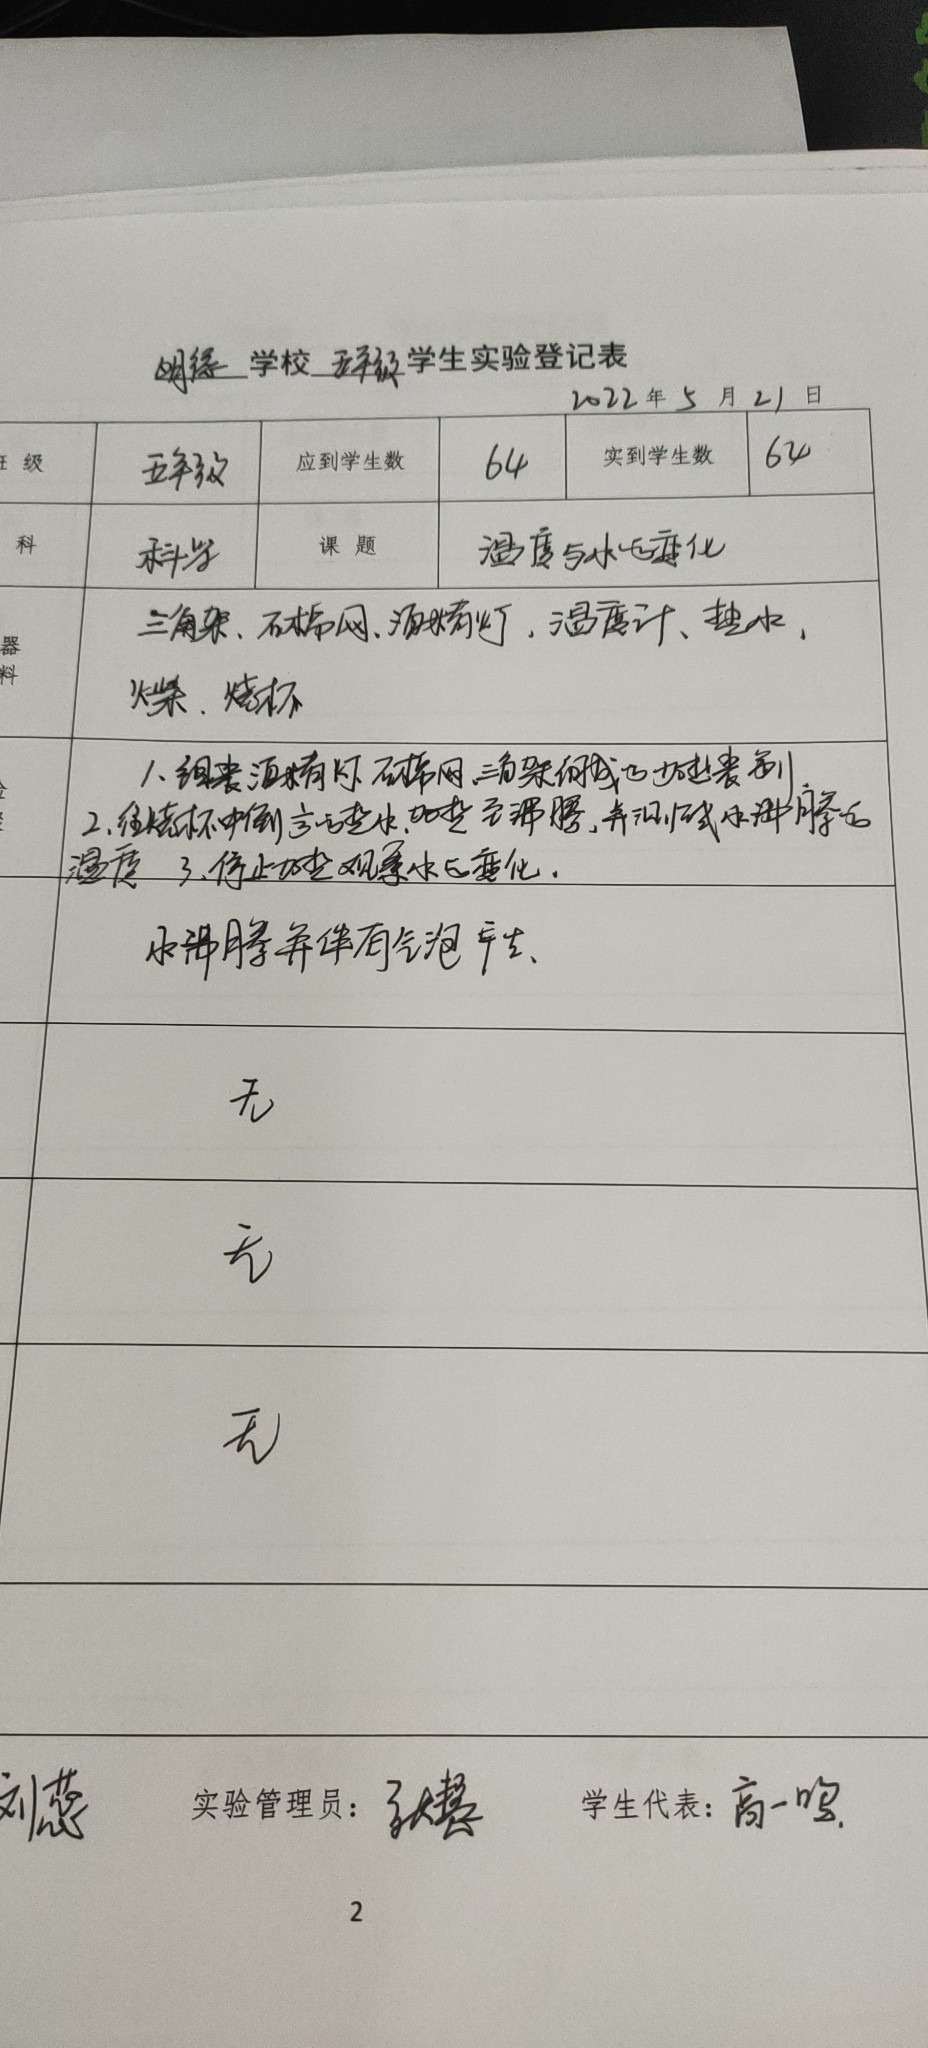 明德 学校 五年级 学生实验登记表
2022 年 5 月 21 日
班 级 五年级 应到学生数 64 实到学生数 64
科 科学 课 题 温度与水的变化
器 三角架、石棉网、酒精灯、温度计、热水、
料 火柴、烧杯
1、组装酒精灯 石棉网 三角架 的加热装制
2、往烧杯中倒 热水、加热至沸腾,并测 水沸腾的
温度 3、停止加热观察水的变化.
水沸腾并伴有气泡产生、
无
无
无
刘蕊 实验管理员: 学生代表: 高一鸣
2